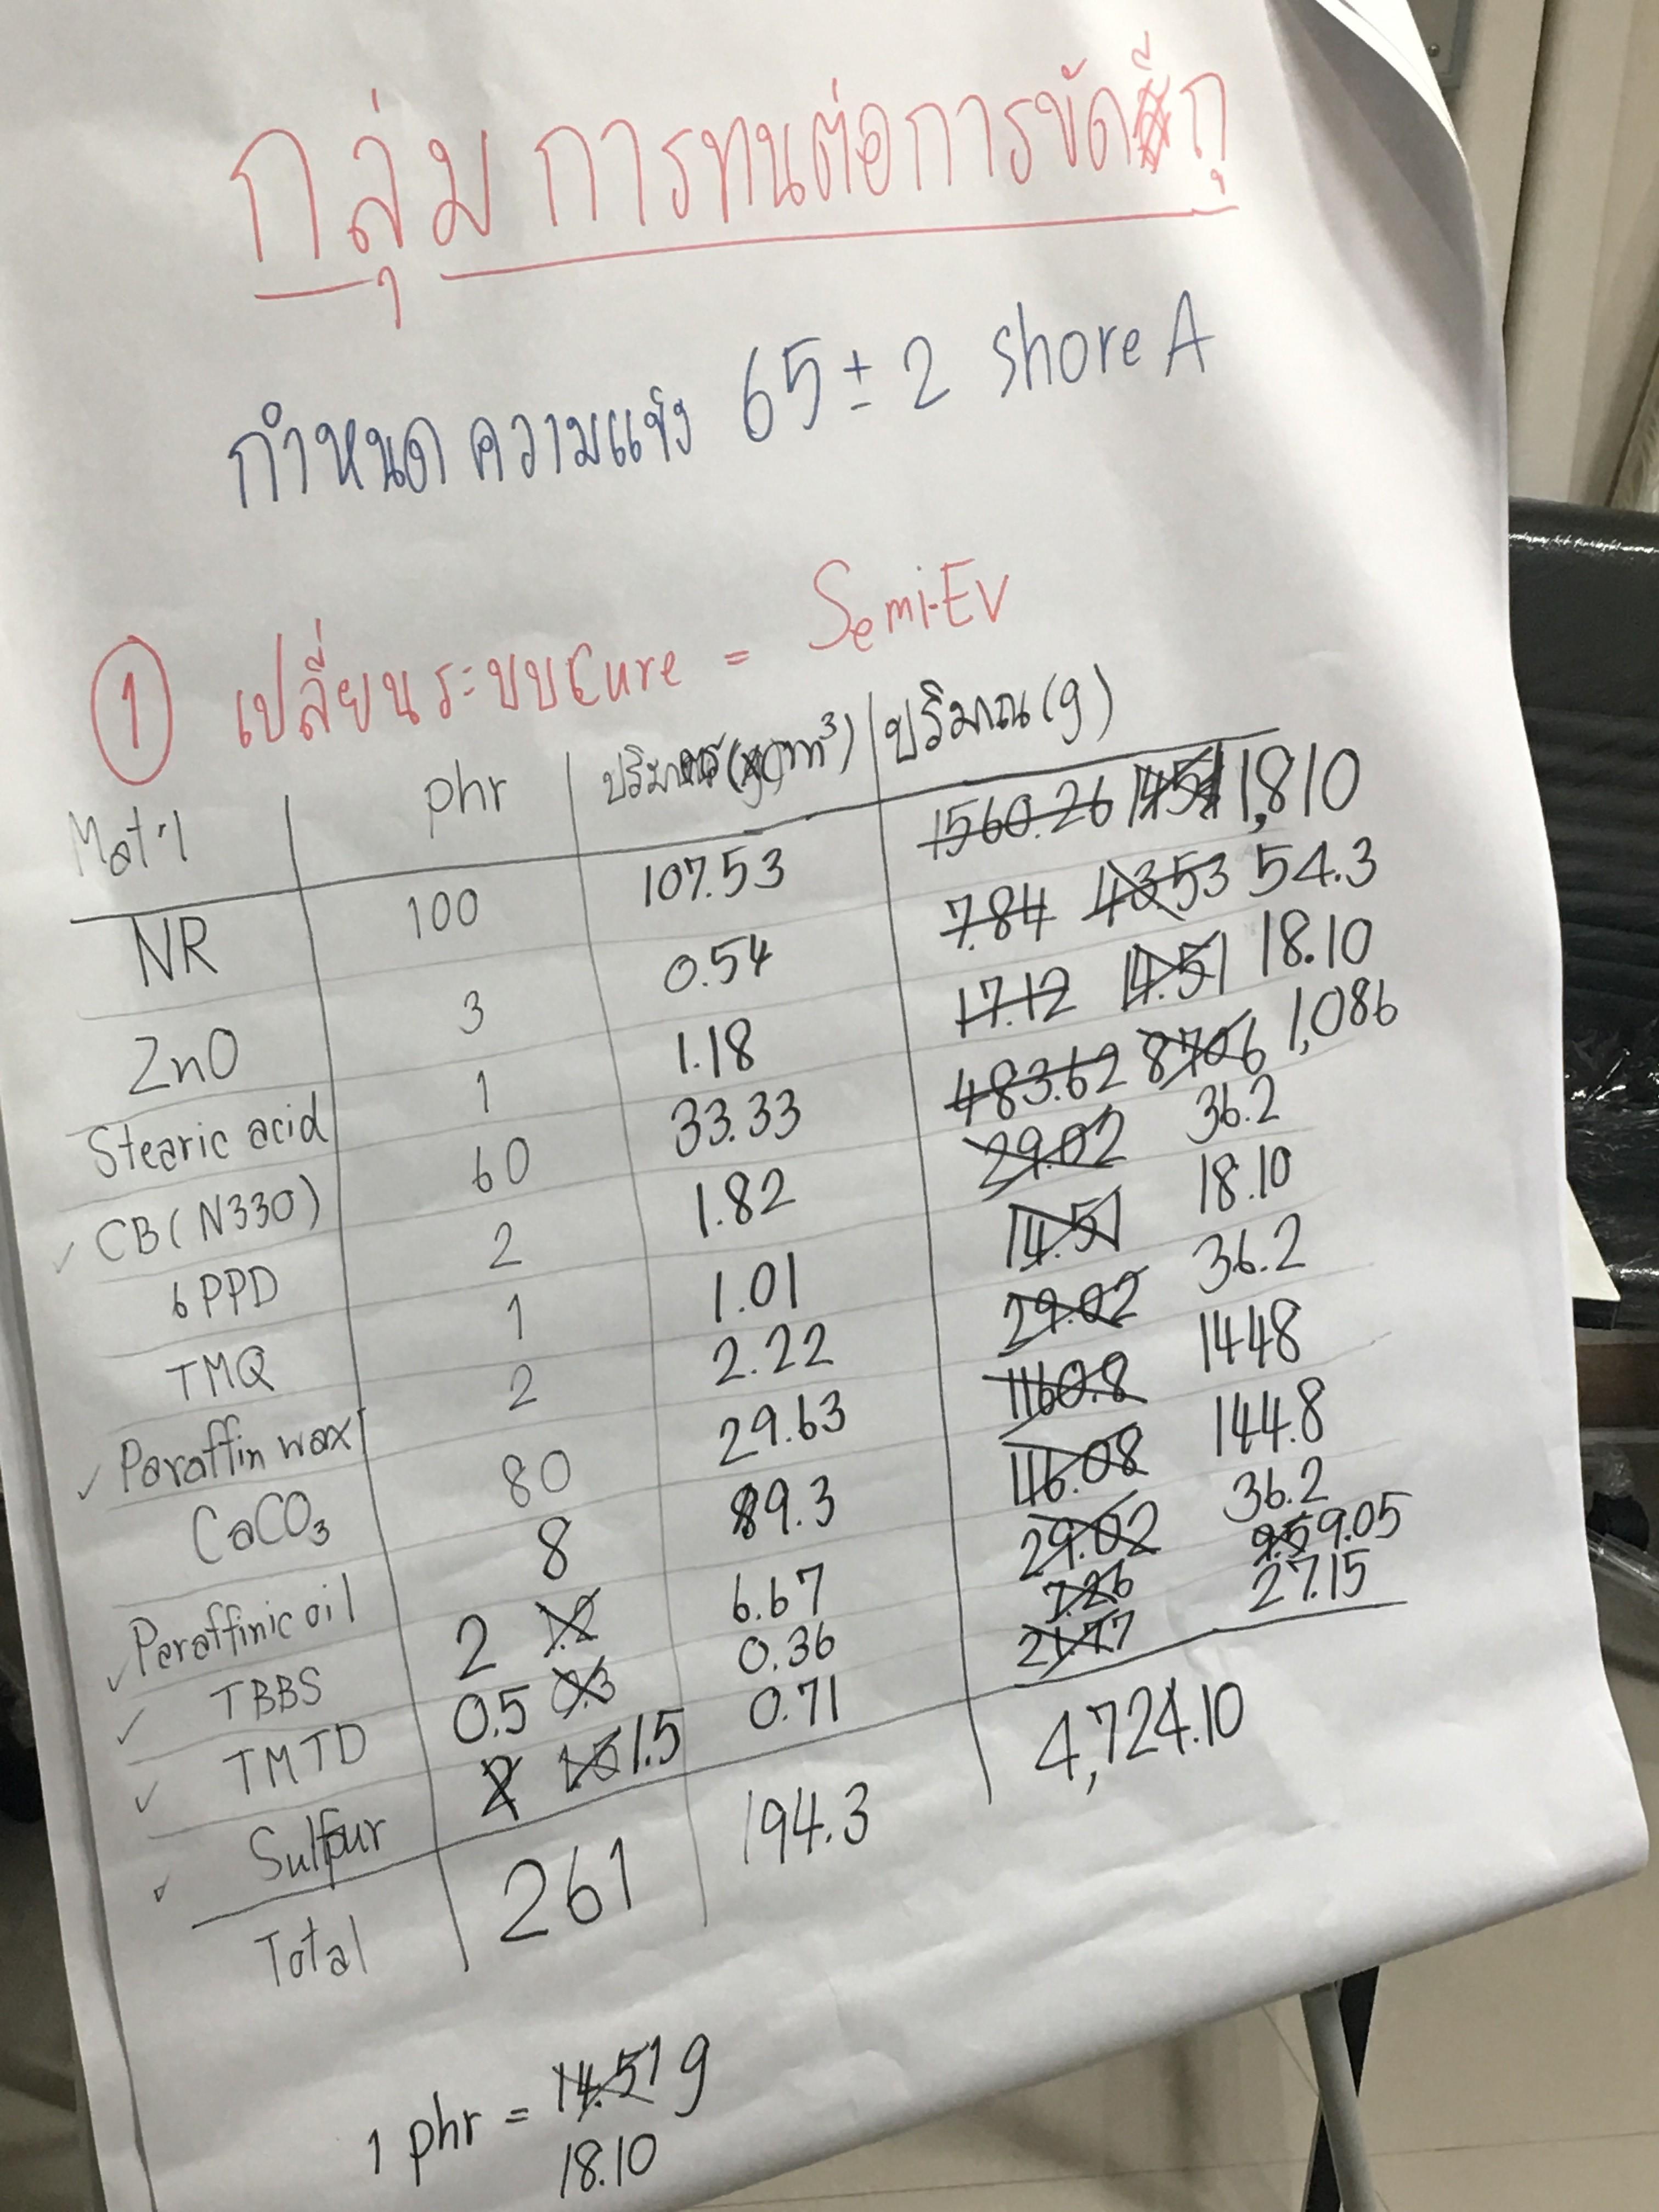 กลุ่ม การทนต่อการขัดถู
กำหนด ความแข็ง 65 ± 2 shore A
1 เปลี่ยนระบบ cure = Semi-EV
Mat'l phr ปริมาตร (cm³) ปริมาณ (g)
NR 100 107.53 1560.26 1451 1,810
ZnO 3 0.54 7.84 43.53 54.3
Stearic acid 1 1.18 17.12 14.51 18.10
✓ CB (N330) 60 33.33 483.62 870.6 1,086
6PPD 2 1.82 29.02 36.2
TMQ 1 1.01 14.51 18.10
✓ Paraffin wax 2 2.22 29.02 36.2
CaCO3 80 29.63 1160.8 1448
✓ Paraffinic oil 8 89.3 116.08 144.8
✓ TBBS 2 1.2 6.67 29.02 36.2
✓ TMTD 0.5 0.3 0.36 7.26 9.5 9.05
✓ Sulfur 2 1.5 1.5 0.71 21.77 27.15
Total 261 194.3 4,724.10
1 phr = 14.51 g
18.10